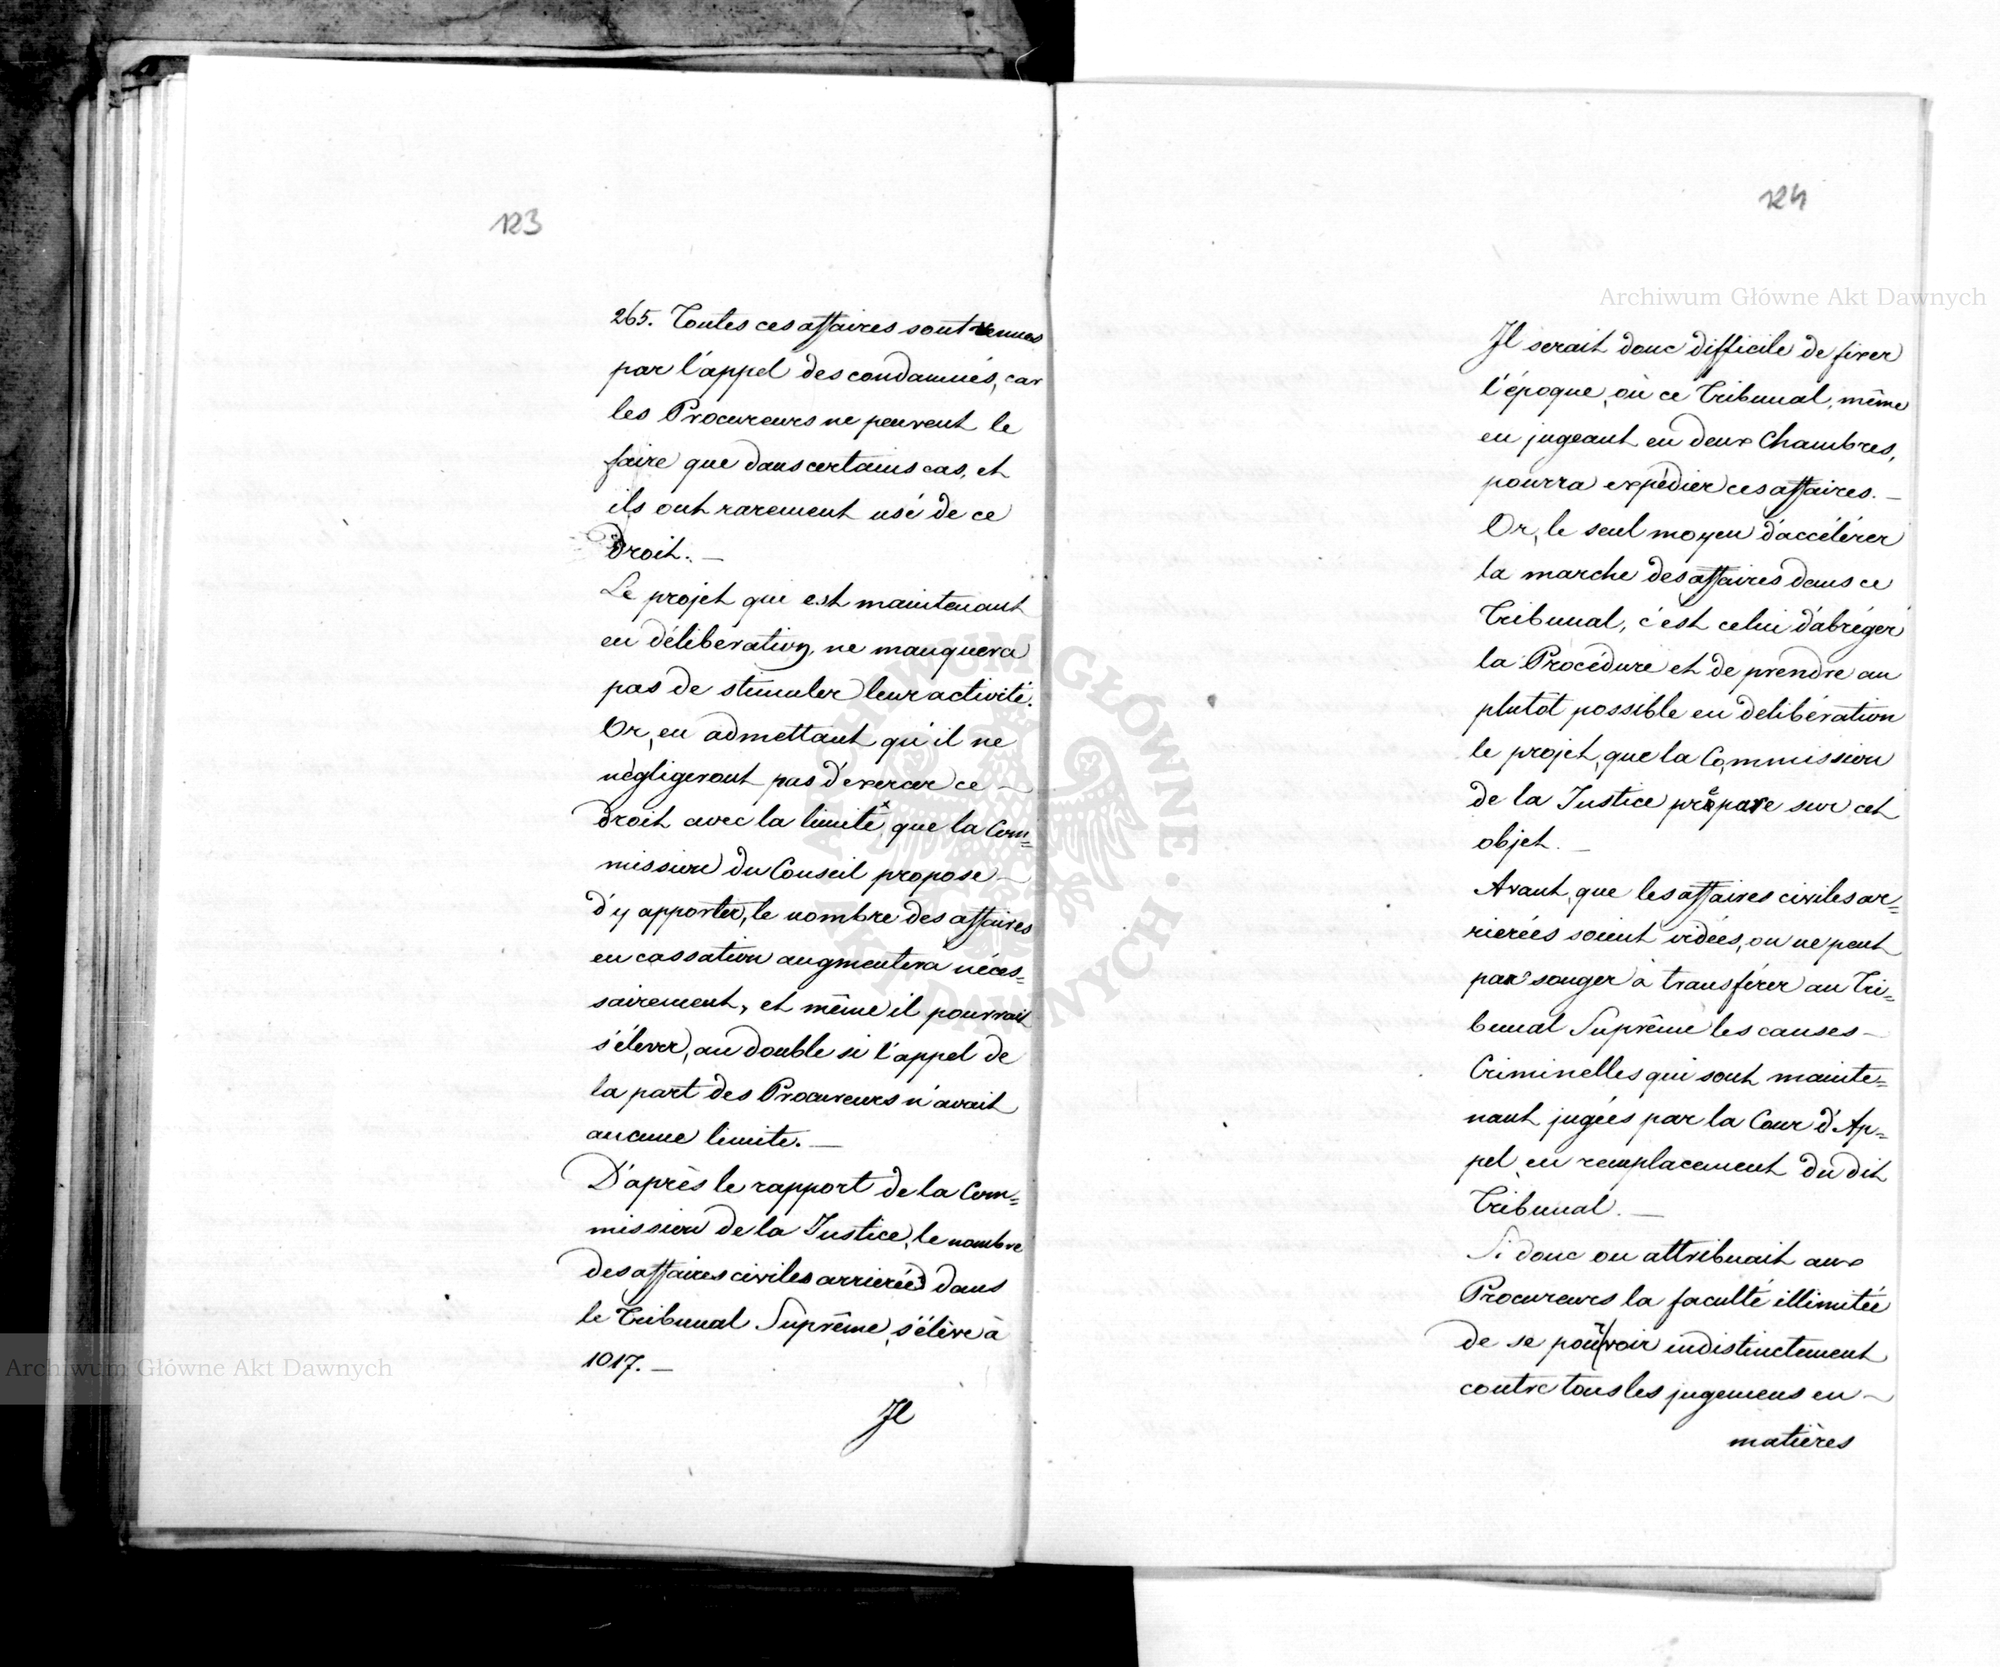 123
265. Toutes ces affaires sont venues
par l'appel des condamnés, car
les Procureurs ne peuvent le
faire que dans certains cas, et
ils ont rarement usé de ce
droit. —
Le projet qui est maintenant
en délibération, ne manquera
pas de stimuler leur activité.
Or, en admettant qu'il ne
négligeront pas d'exercer ce —
droit avec la limite, que la Com=
mission du Conseil propose —
d'y apporter, le nombre des affaires
en cassation augmentera néces=
sairement, et même il pourrait
s'élever, au double si l'appel de
la part des Procureurs n'avait
aucune limite. —
D'après le rapport de la Com=
mission de la Justice, le nombre
des affaires civiles arrierées dans
le Tribunal Suprême, s'élève à
1017. —
Il
124
Il serait donc difficile de fixer
l'époque, où ce Tribunal, même
en jugeant en deux Chambres,
pourra expédier ces affaires. —
Or, le seul moyen d'accélérer
la marche des affaires dans ce
Tribunal, c'est celui d'abréger
la Procédure et de prendre au
plutôt possible en delibération
le projet, que la Commission
de la Justice prépare sur cet
objet. —
Avant, que les affaires civiles ar=
rierées soient vidées, on ne peut
pas songer à transférer au Tri=
bunal Suprême les causes —
Criminelles qui sont mainte=
nant jugées par la Cour d'Ap=
pel, en remplacement du dit
Tribunal. —
Si donc on attribuait aux
Procureurs la faculté illimitée
de se pourvoir indistinctement
contre tous les jugemens en —
matières
Archiwum Główne Akt Dawnych
Archiwum Główne Akt Dawnych
ARCHIWUM GŁÓWNE AKT DAWNYCH